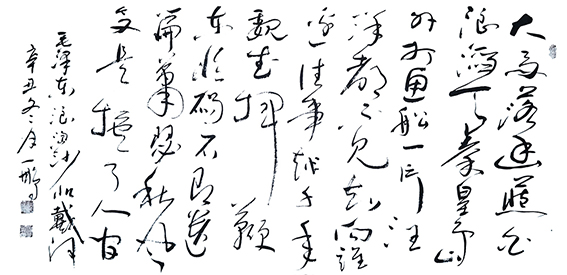 大雨落幽燕白
浪滔天秦皇岛
外打鱼船一片汪
洋都不见知向谁
边往事越千年
魏武挥鞭
东临碣石有遗
篇萧瑟秋风今
又是换了人间
毛泽东浪淘沙北戴河
辛丑冬月一鹏